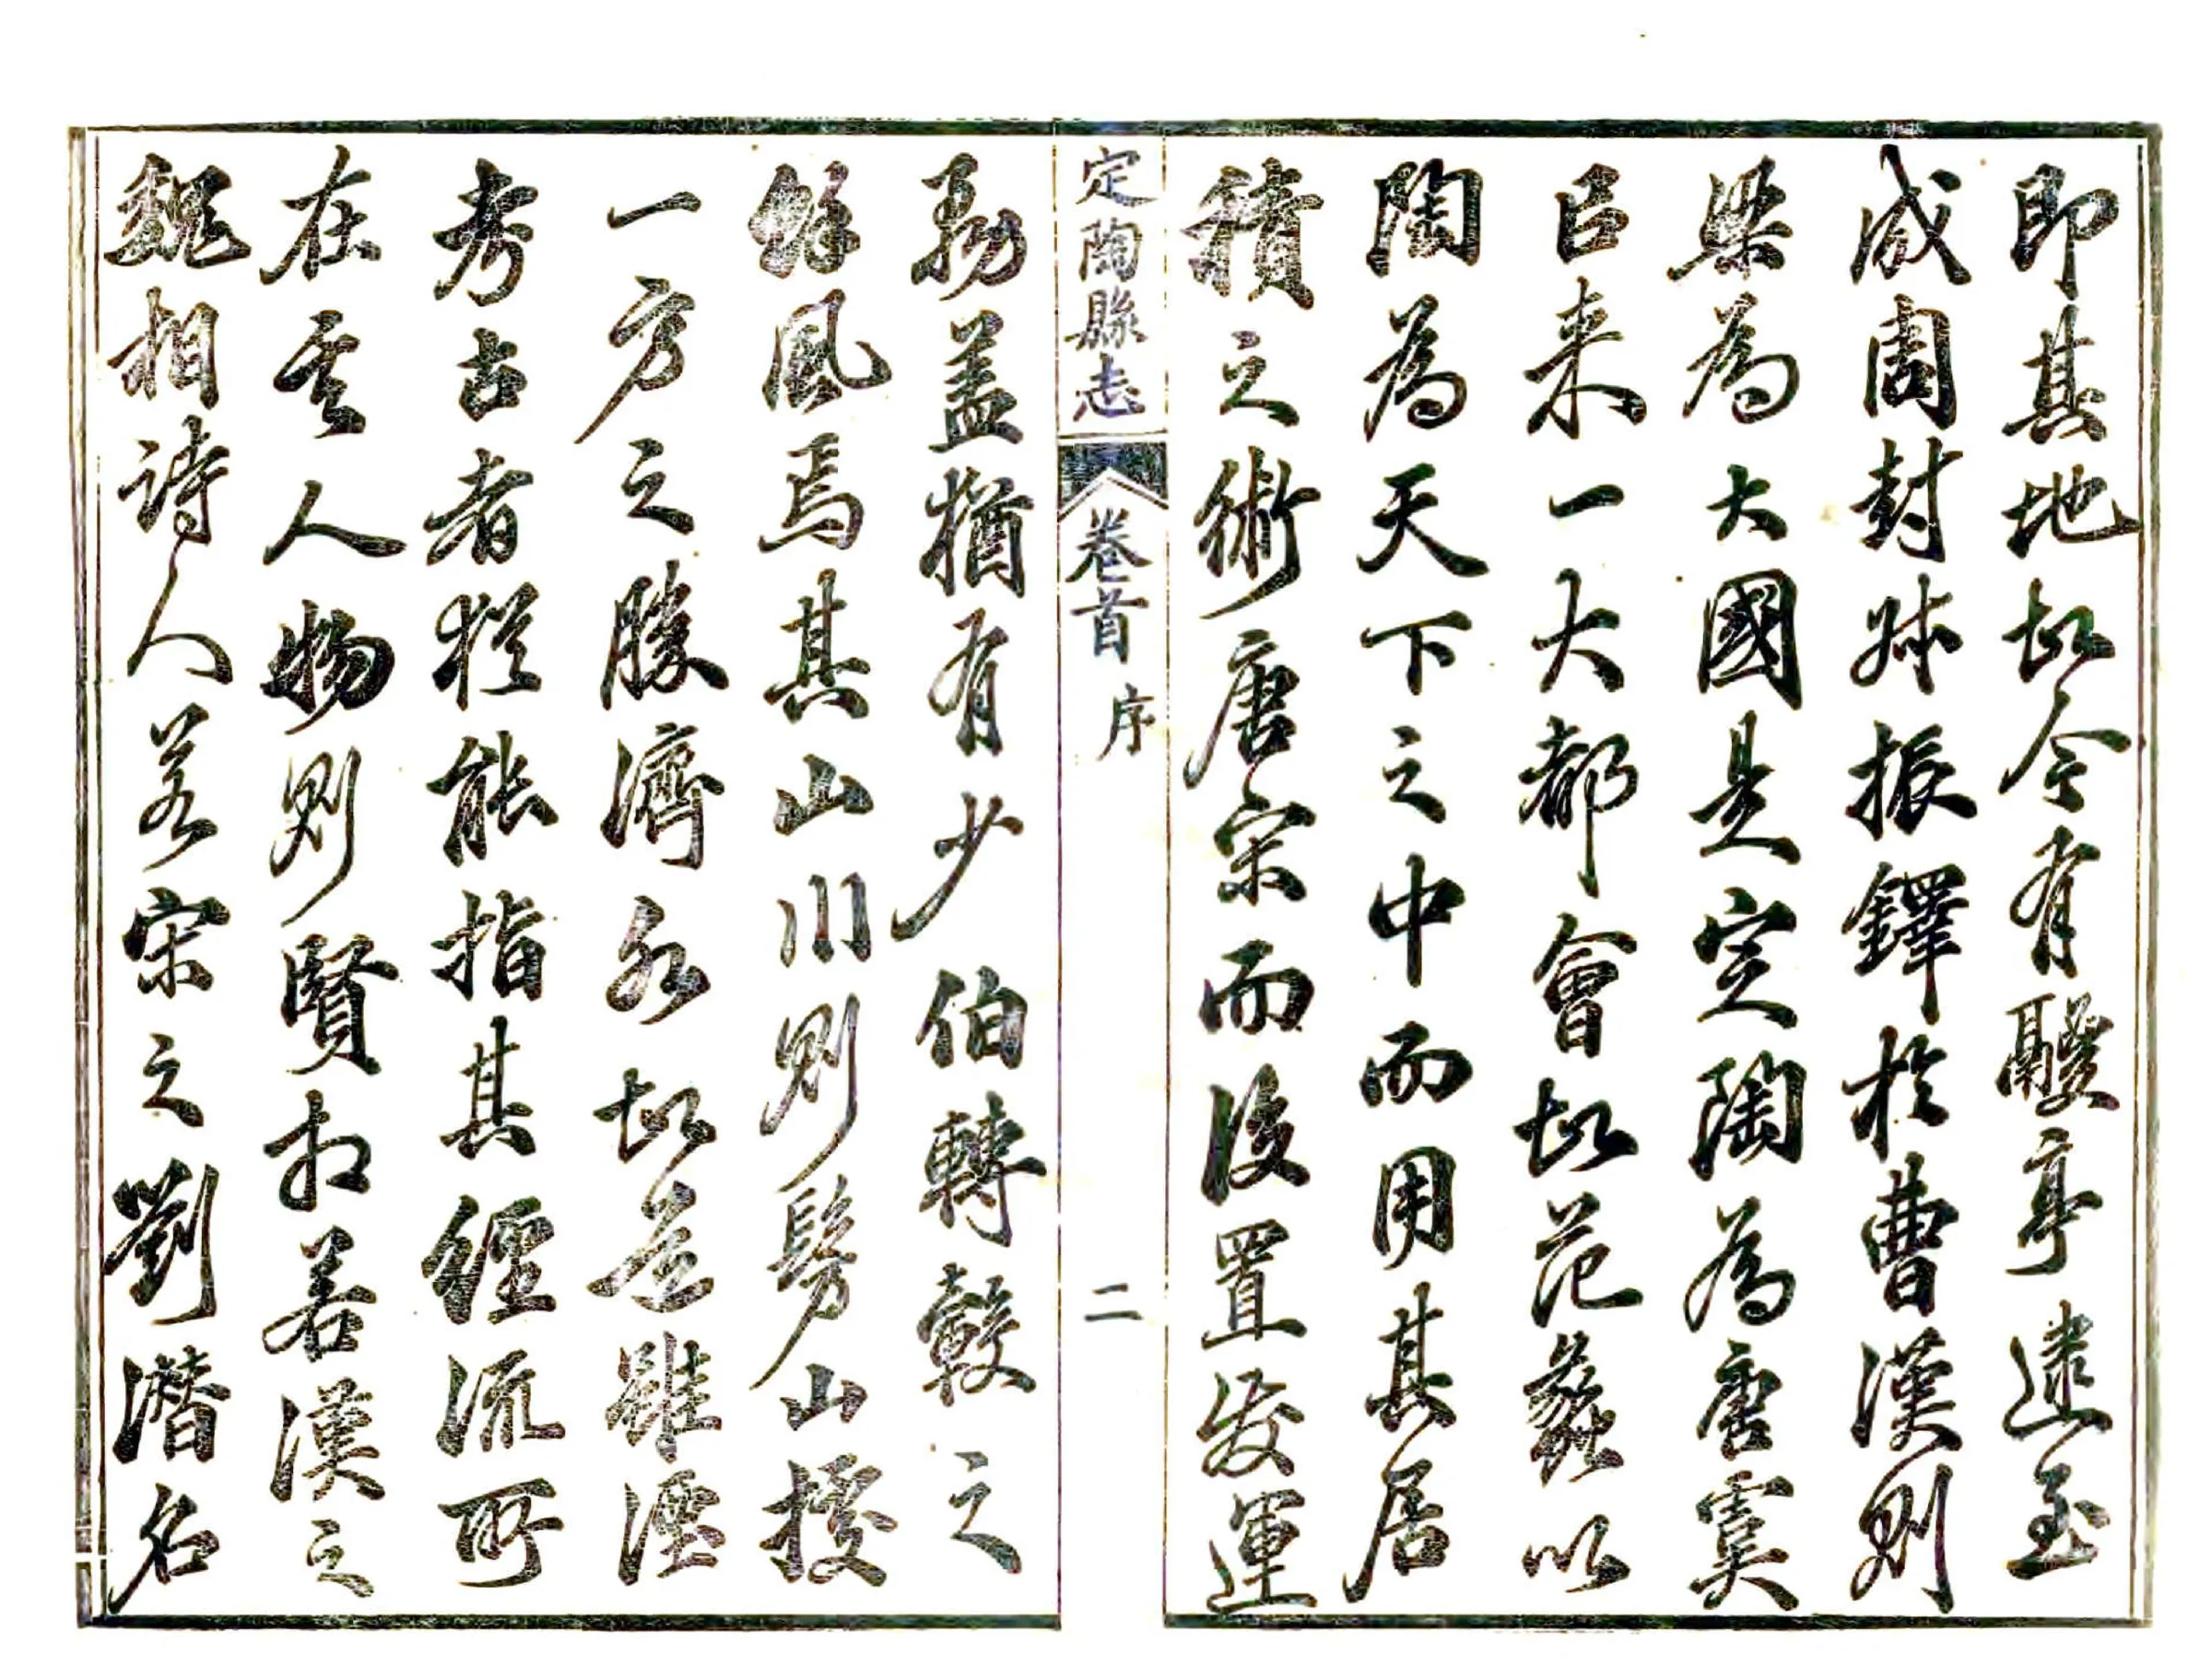 即其地故今有髣亭逮至
成周封叔振鐸於曹漢則
梁為大國是定陶為唐虞
已来一大都會故范蠡以
陶為天下之中而用其居
積之術唐宋而後置發運
務盖猶有少伯轉轂之
定陶縣志
卷首
序
二
餘風焉其山川則髣山據
一方之勝濟水故道雖湮
考古者猶能指其經流所
在至人物則賢相若漢之
魏相詩人若宋之劉潛名